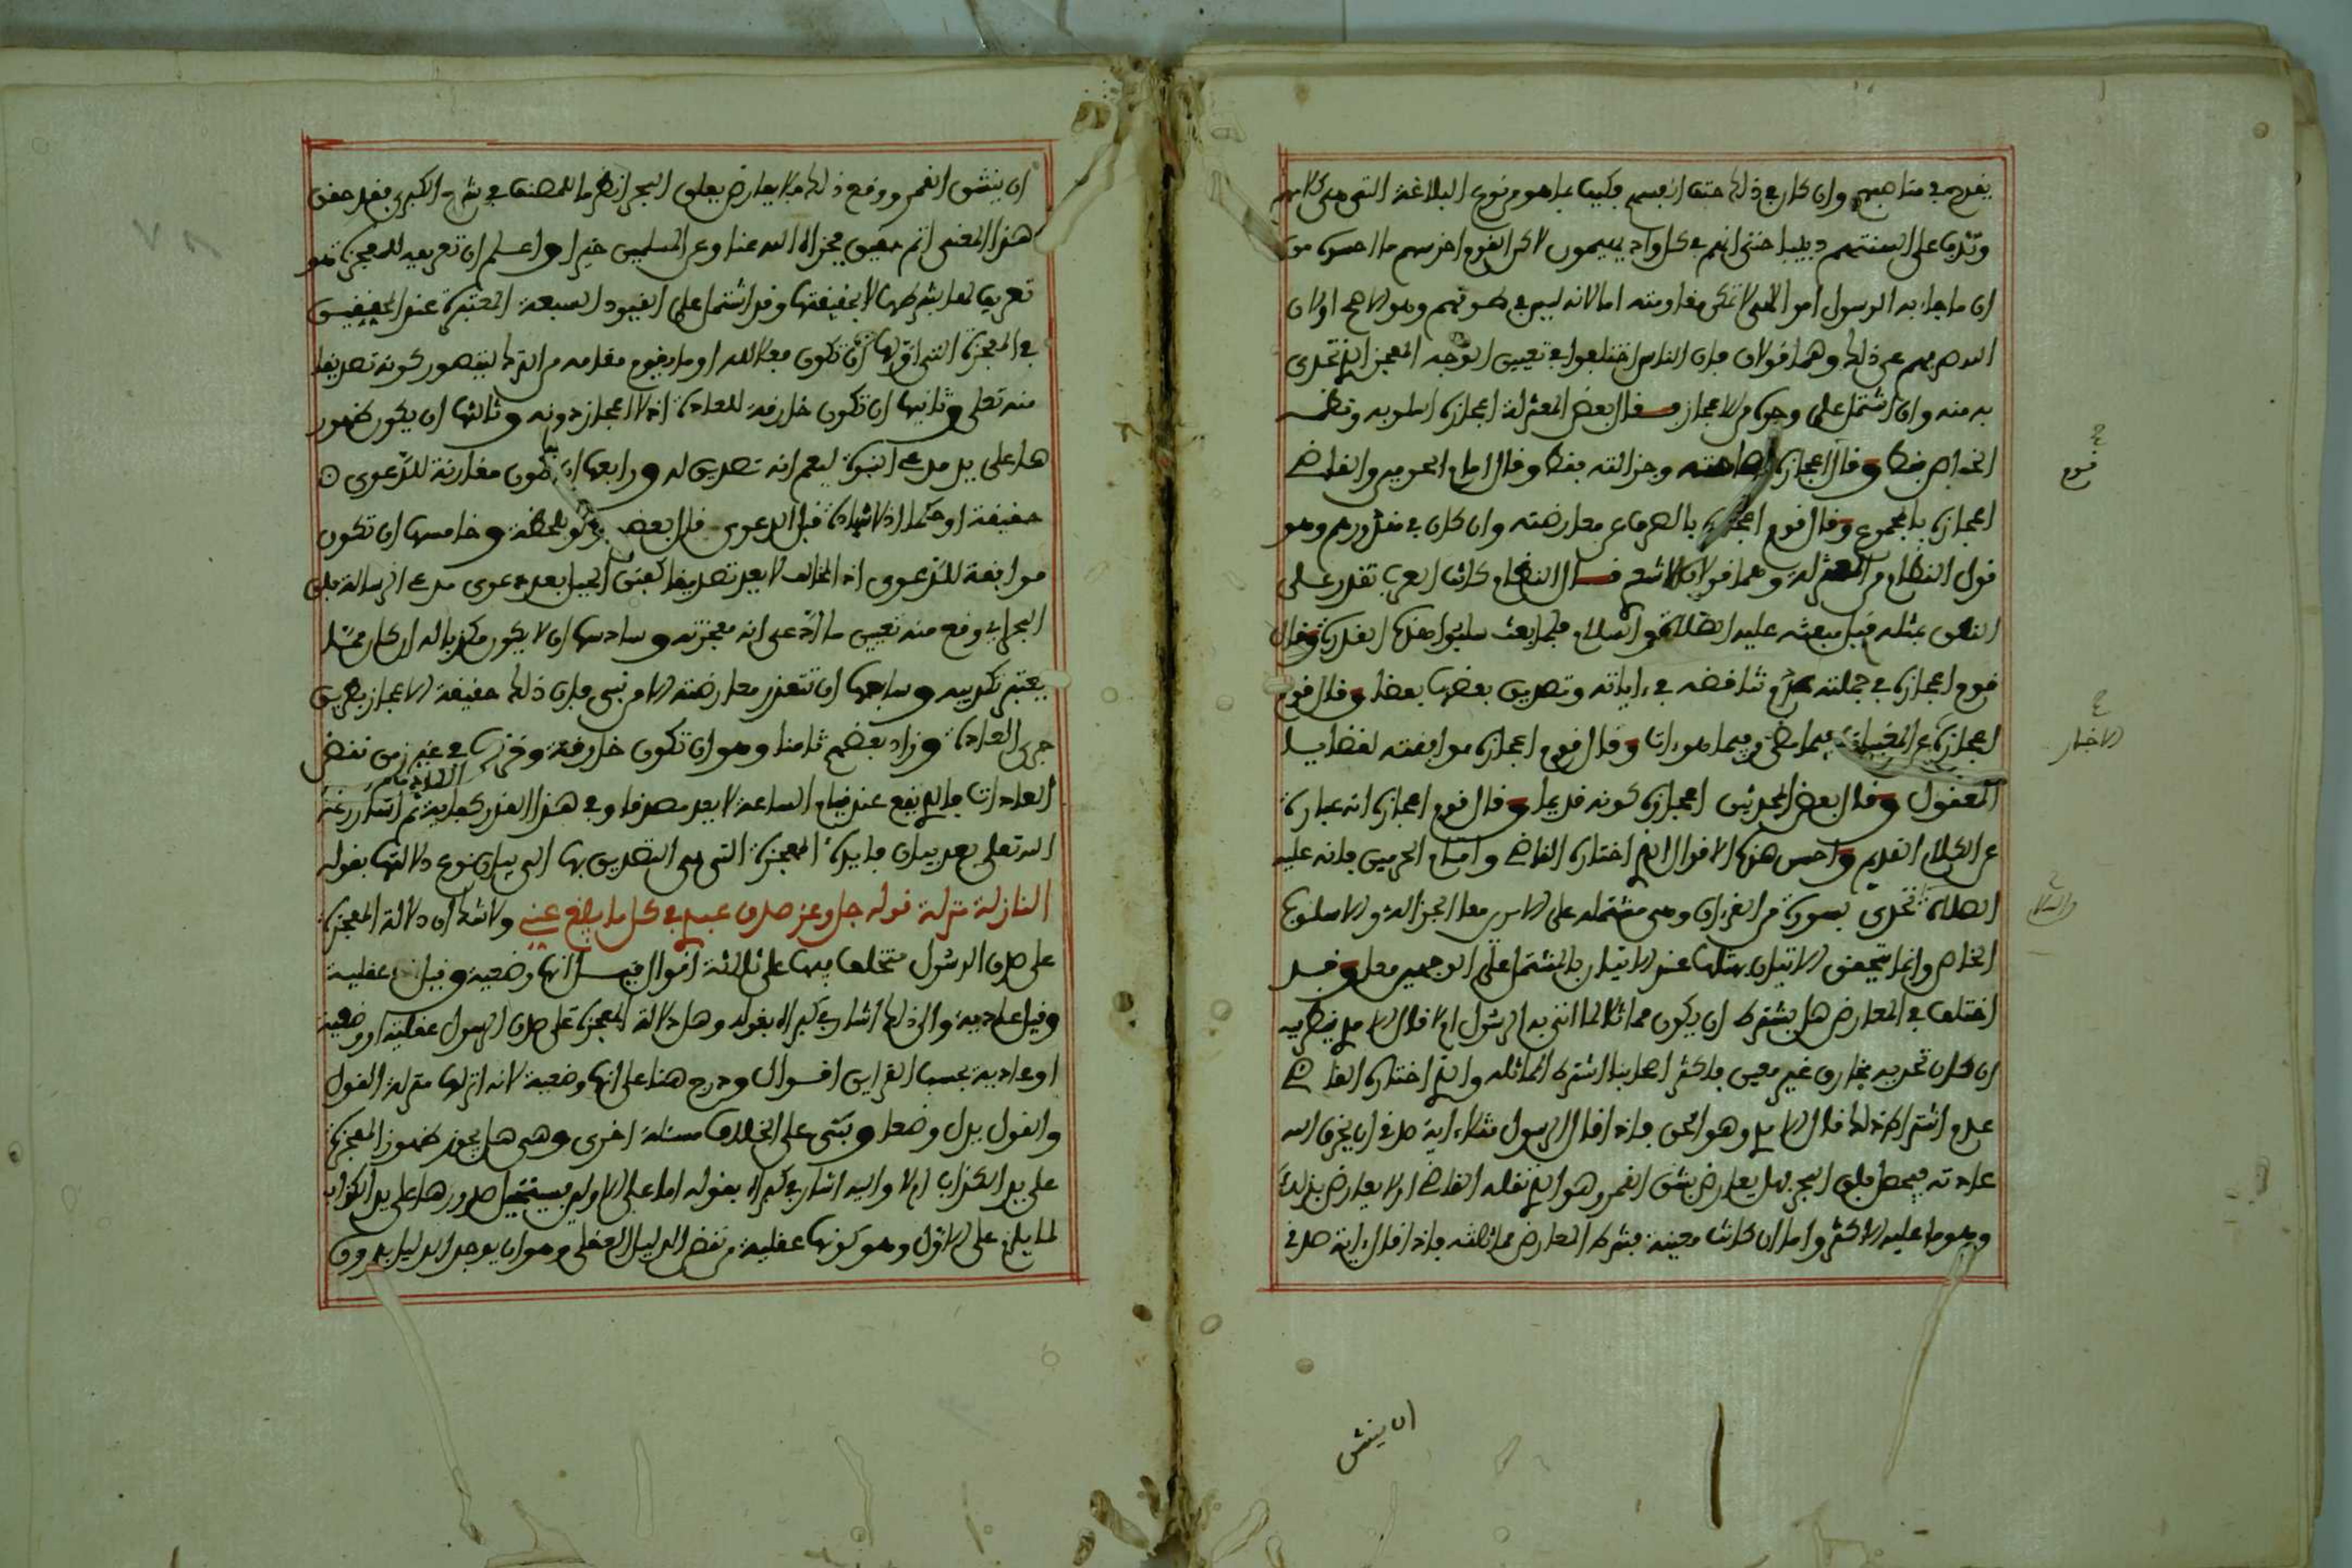 يقدح في مناصبهم وان كان في ذلك حتف انفسهم فكيف بما هو من نوع البلاغة التي هي كلامهم
وتدرب على السنتهم دبيبا حتى انهم في كل واد يهيمون لاكن القوم اخرسهم ما احسوا من
ان ما جاء به الرسول امر الهي لا تمكن مقاومته اما لانه ليس في طوقهم وهو الاصح او لان
الله صرفهم عن ذلك وهما قولان فان الناس اختلفوا في تعيين الوجه المعجز الذي تحدى
به منه وان اشتمل على وجوه من الاعجاز فقال بعض المعتزلة اعجازه اسلوبه ونظمه
الخاص فقط وقال اعجازه فصاحته وجزالته فقط وقال امام الحرمين والقاضي
اعجازه بالمجموع وقال قوم اعجازه بالصرف عن معارضته وان كان في مقدورهم وهو
قول النظام من المعتزلة وهما قولان للاشعري قال النظام كانت العرب تقدر على
النطق بمثله قبل مبعثه عليه الصلاة والسلام فلما بعث سلبوا هذه القدرة وقال
قوم اعجازه في جملته عدم تناقضه في ءاياته وتصديق بعضها بعضا وقال قوم
اعجازه عن المغيبات فيما مضى وفيما هو ءات وقال قوم اعجازه موافقته لقضايا
المعقول وقال بعض المحدثين اعجازه كونه قديما وقال قوم اعجازه انه عبارة
عن الكلام القديم واحسن هذه الاقوال الذي اختاره القاضي وامام الحرمين فانه عليه
الصلاة تحدى بسورة من القرءان وهي مشتملة على الامرين معا الجزالة والاسلوب
الخاص وانما يتحقق الاتيان بمثلها عند الاتيان بما يشتمل على الوجهين معا وقد
اختلف في المعارض هل يشترط ان يكون مماثلا لما اتى به الرسول ام لا قال الامدي ينظر فيه
ان كان تحديه بخارق غير معين فاكثر اصحابنا اشترط المماثلة والذي اختاره القاضي
عدم اشتراط ذلك قال الامدي وهو الحق فاذا قال الرسول مثلا ءاية صدقي ان يخرق الله
عادته فيحصل فلق البحر فهل يعارض بشق القمر وهو الذي نقله القاضي او لا يعارض بذلك
وهو ما عليه الاكثر واما ان كانت معينة فشرط المعارض مماثلته فاذا قال ءاية صدقي
قوم
الاخبار
والسلام
ان ينشق
ان ينشق القمر ووقع ذلك فلا يعارض بفلق البحر انظر ما للمصنف في شرح الكبرى فقد حقق
هذا المعنى اتم تحقيق فجزاه الله عنا وعن المسلمين خيرا واعلم ان تعريفه للمعجزة هو
تعريف لها بشرطها لا بحقيقتها وقد اشتمل على القيود السبعة المعتبرة عند المحققين
في المعجزة التي اولها ان تكون فعلا لله او ما يقوم مقامه من الترك ليتصور كونه تصديقا
منه تعلى وثانيها ان تكون خارقة للعادة اذ لا اعجاز دونه وثالثها ان يكون ظهور
ها على يد مدعي النبوة ليعلم انه تصديق له ورابعها ان تكون مقارنة للدعوى
حقيقة او حكما اذ لا شهادة قبل الدعوى قال بعض ولو بلحظة وخامسها ان تكون
موافقة للدعوى اذ المخالف لا يعد تصديقا كفتق الجبل بعد دعوى مدعي الرسالة فلق
البحر اي وقع منه تعيين ما ادعى انه معجزته وسادسها ان لا يكون مكذبا له ان كان ممن
يعتبر تكذيبه وسابعها ان تتعذر معارضته الا من نبي فان ذلك حقيقة الاعجاز بطريق
جري العادة وزاد بعضهم ثامنا وهو ان تكون خارقة وقرنها في غير زمن نقض
العادات فالذي يقع عند قيام الساعة لا يعد مصدقا وفي هذا القدر كفاية ثم اشار رحمه
الله تعلى بعد بيان فايدة المعجزة التي هي التصديق بها الى بيان نوع دلالتها بقوله
النازلة منزلة قوله جل وعز صدق عبدي في كل ما يبلغ عني ولا شك ان دلالة المعجزة
على صدق الرسول مختلف فيها على ثلاثة اقوال قيل انها وضعية وقيل انها عقلية
وقيل عادية والى ذلك اشار في كبراه بقوله وهل دلالة المعجزة على صدق الرسول عقلية او وضعية
او عادية بحسب القراين اقوال ودرج هنا على انها وضعية لانه انزلها منزلة القول
والقول يدل وضعا وبنى على الخلاف مسئلة اخرى وهي هل يجوز ظهور المعجزة
على يد الكذاب ام لا واليه اشار في كبراه بقوله اما على الاولين فيستحيل صدورها على يد الكذاب
لما يلزم على الاول وهو كونها عقلية من نقض الدليل العقلي وهو ان يوجد الدليل بدون